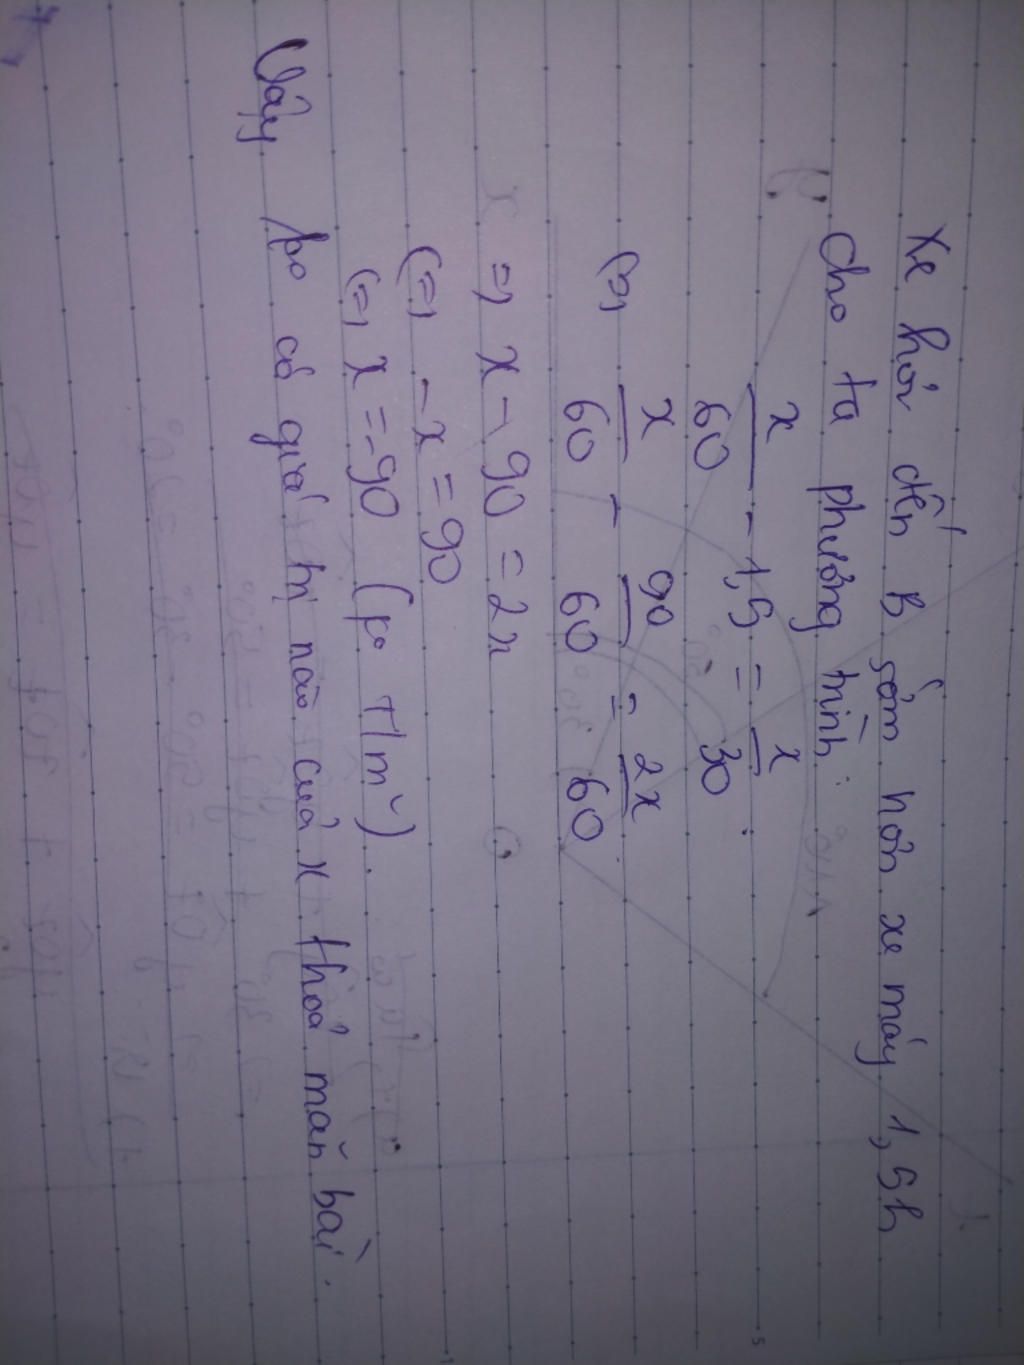 Xe hơi đến B sớm hơn xe máy 1,5h
Cho ta phương trình:
x/60 - 1,5 = x/30.
(=) x/60 - 90/60 = 2x/60.
=) x - 90 = 2x
(=) -x = 90
(=) x = -90 (ko T/m).
Vậy ko có giá trị nào của x thoả mãn bài.